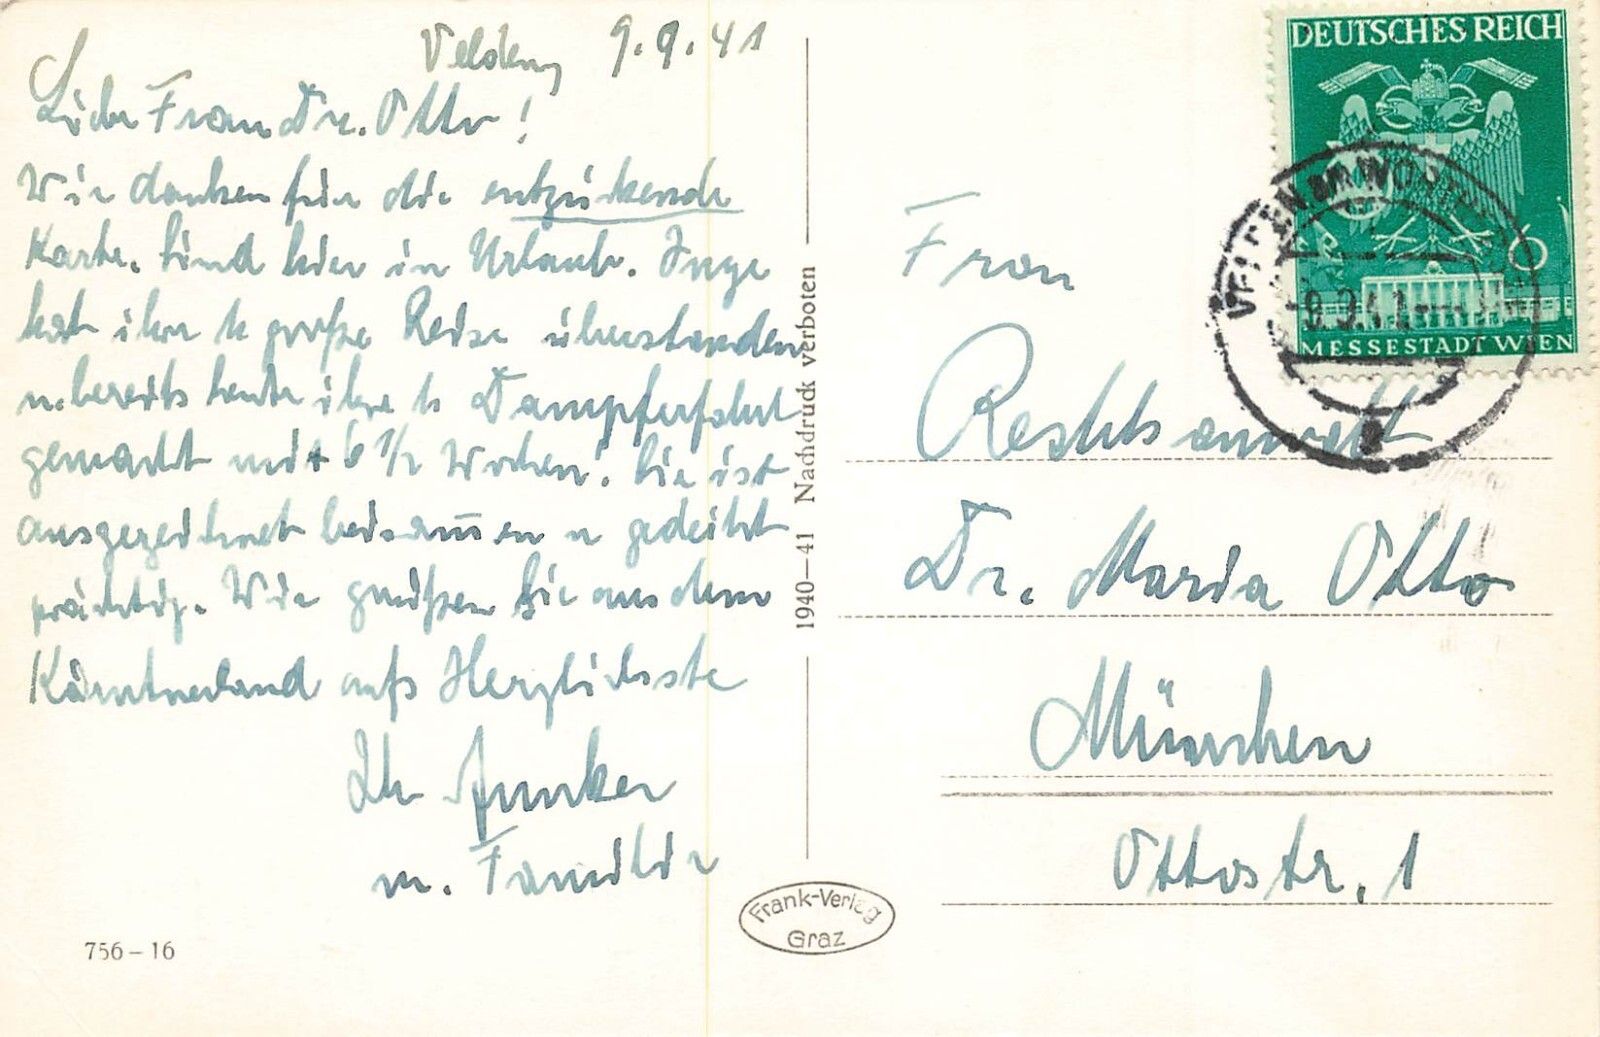 Velden, 9.9.41
Liebe Frau Dr. Otto!
Wir danken für die entzückende
Karte. Sind hier in Urlaub. Inge
hat ihre 1. große Reise überstanden
u. bereits heute ihre 1. Dampferfahrt
gemacht mit 6 1/2 Wochen! Sie ist
ausgezeichnet beisammen u gedeiht
prächtig. Wir grüßen Sie aus dem
Kärntnerland aufs Herzlichste
Ihr Junker
m. Familie
756-16
1940-41 Nachdruck verboten
Frank-Verlag
Graz
DEUTSCHES REICH
6
MESSESTADT WIEN
VELDEN AM WÖRTHERSEE
-9.9.41
Frau
Rechtsanwalt
Dr. Maria Otto
München
Ottostr. 1